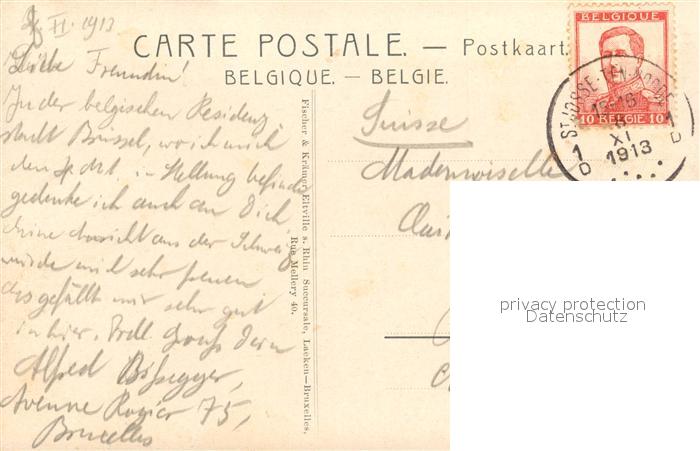 XI. 1913
Liebe Freundin!
In der belgischen Residenz-
stadt Brüssel, wo ich mich
den in Stellung befinde
gedenke ich auch an Dich,
Eine Ansicht aus der Schweiz
würde mich sehr freuen
es gefällt mir sehr gut
hier. Gruss Dein
Alfred Bissegger,
Avenue Rogier 75,
Bruxelles
CARTE POSTALE. — Postkaart.
BELGIQUE. — BELGIE.
Fischer & Krämer Eltville s. Rhin Succursale, Laeken-Bruxelles,
Rue Mellery 40.
Suisse
Mademoiselle
BELGIQUE
10 BELGIE 10
ST-JOSSE-TEN-NOODE
1 D
XI
1913
1 D
privacy protection
Datenschutz